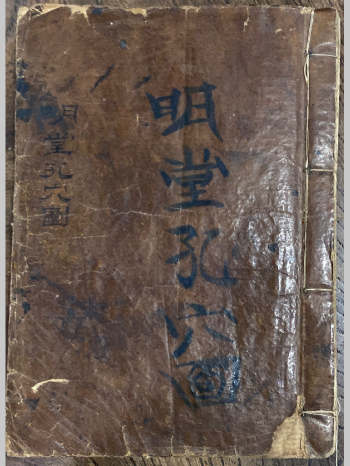 明堂孔穴圖
明堂孔穴圖